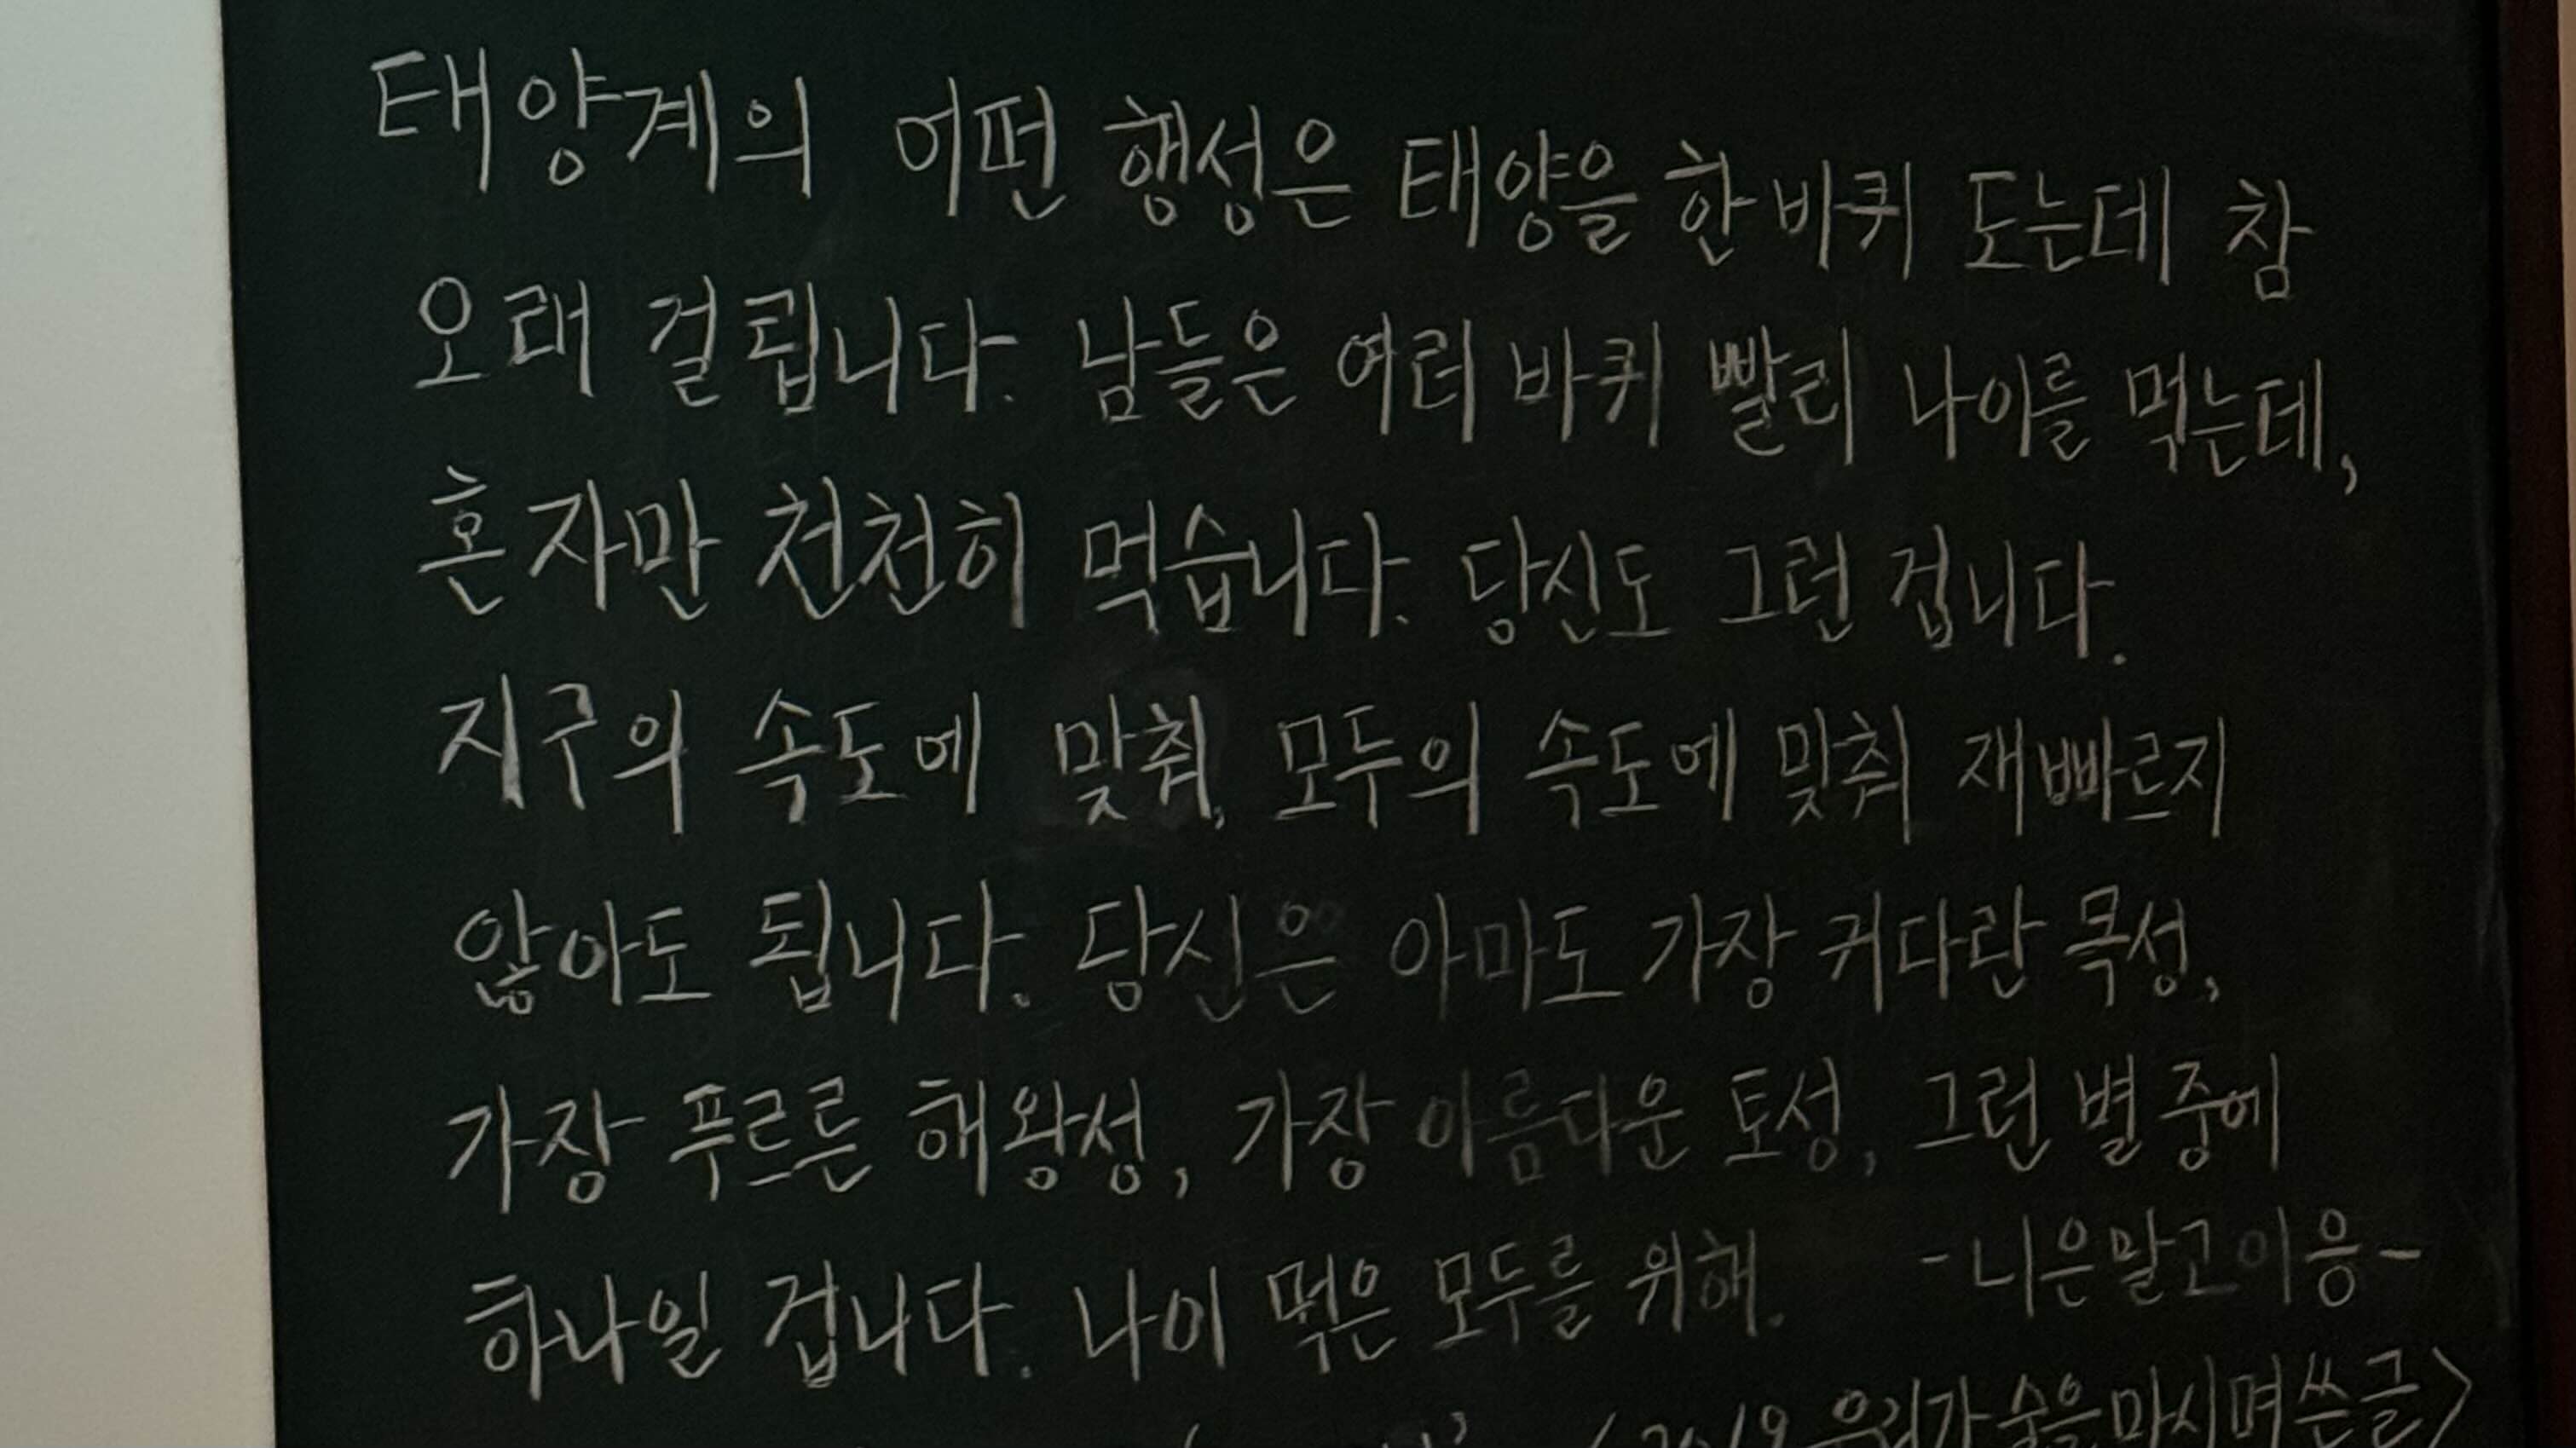 태양계의 어떤 행성은 태양을 한바퀴 도는데 참
오래 걸립니다. 남들은 여러 바퀴 빨리 나이를 먹는데,
혼자만 천천히 먹습니다. 당신도 그런 겁니다.
지구의 속도에 맞춰, 모두의 속도에 맞춰 재빠르지
않아도 됩니다. 당신은 아마도 가장 커다란 목성,
가장 푸르른 해왕성, 가장 아름다운 토성, 그런 별 중에
하나일 겁니다. 나이 먹은 모두를 위해. -니은말고이응-
2019 우리가 술을 마시며 쓴 글>